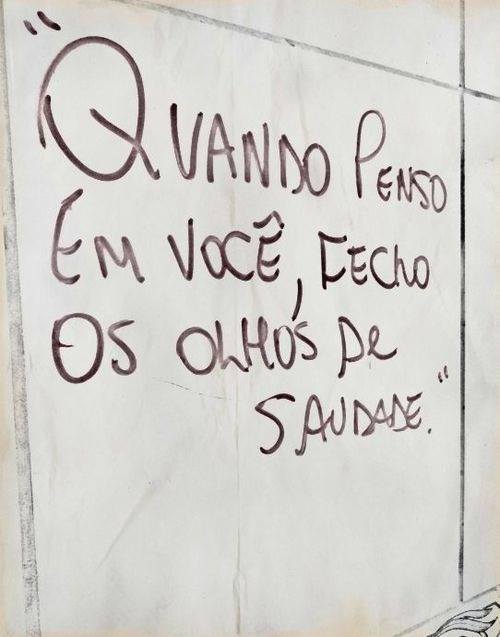 "QUANDO PENSO
EM VOCÊ, FECHO
OS OLHOS DE
SAUDADE."